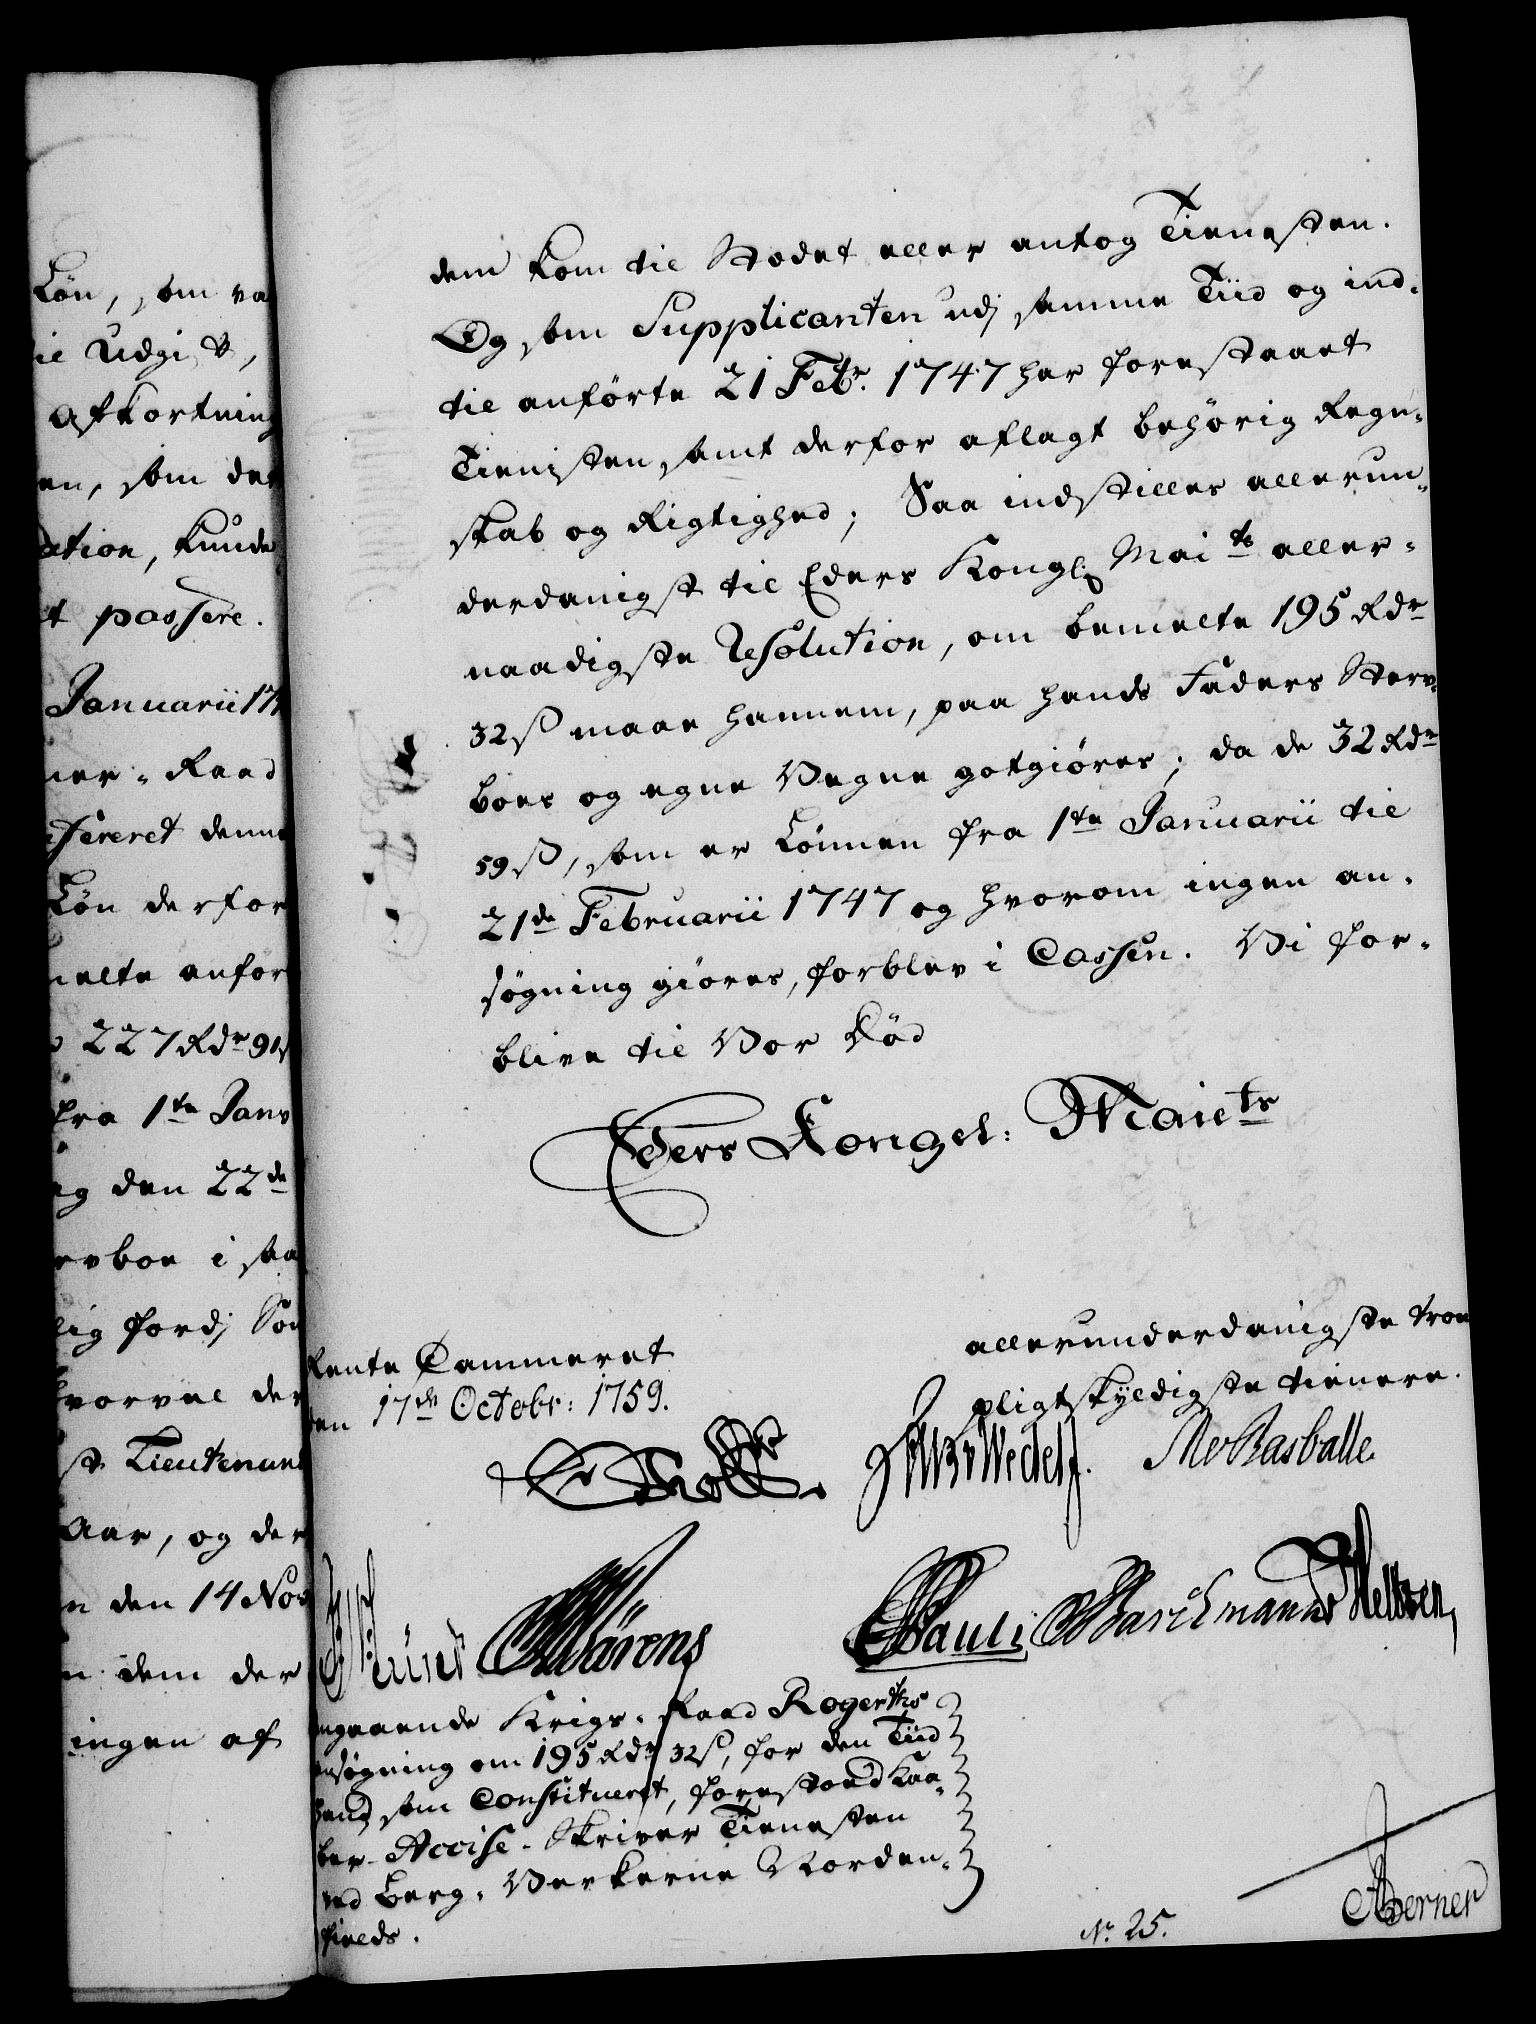 Løn, som va
il Udgivt,
Afkortning
en, som det
ation, kunde
t passere.
Januarii 17
mer-Raad
fereret denne
Løn derfor
melte anfør
227 Rdr 91
fra 1te Janu
og den 22de
rvboe i saa
lig fordj Søn
hvorvel der
st Lieutenant
Aar, og der
n den 14 Nov
n dem der
ingen af
dem kom til Stædet eller antog Tienesten.
Og som Supplicanten udj samme Tiid og ind-
til anførte 21 Febr. 1747 har forestaaet
Tienisten, samt derfor aflagt behørig Regn-
skab og Rigtighed; Saa indstilles allerun-
derdanigst til Eders Kongl. Mai ts aller-
naadigste Resolution, om bemelte 195 Rdr
32 ß maae hannem, paa hands Faders Sterv-
boes og egne Vegne gotgiøres; da de 32 Rdr
59 ß, som er Lønnen fra 1te Januarii til
21de Februarii 1747 og hvorom ingen an-
søgning giøres, forblev i Cassen. Vi for-
blive til Vor Død
Eders Kongel: Maiets
allerunderdanigste troe
pligtskyldigste tienere.
Rente Cammeret
den 17de Octobr: 1759.
Wedel J. Basballe.
Mørens Pauli Barchmann Meltzen,
ngaaende Krigs-Raad Rogerths
nsøgning om 195 Rdr 32 ß, for den Tiid
hand, som Constitueret, forestoed Kaa-
ber-Accise-Skriver Tienesten
ved Berg-Verkerne Norden-
fields.
No 25.
Berner